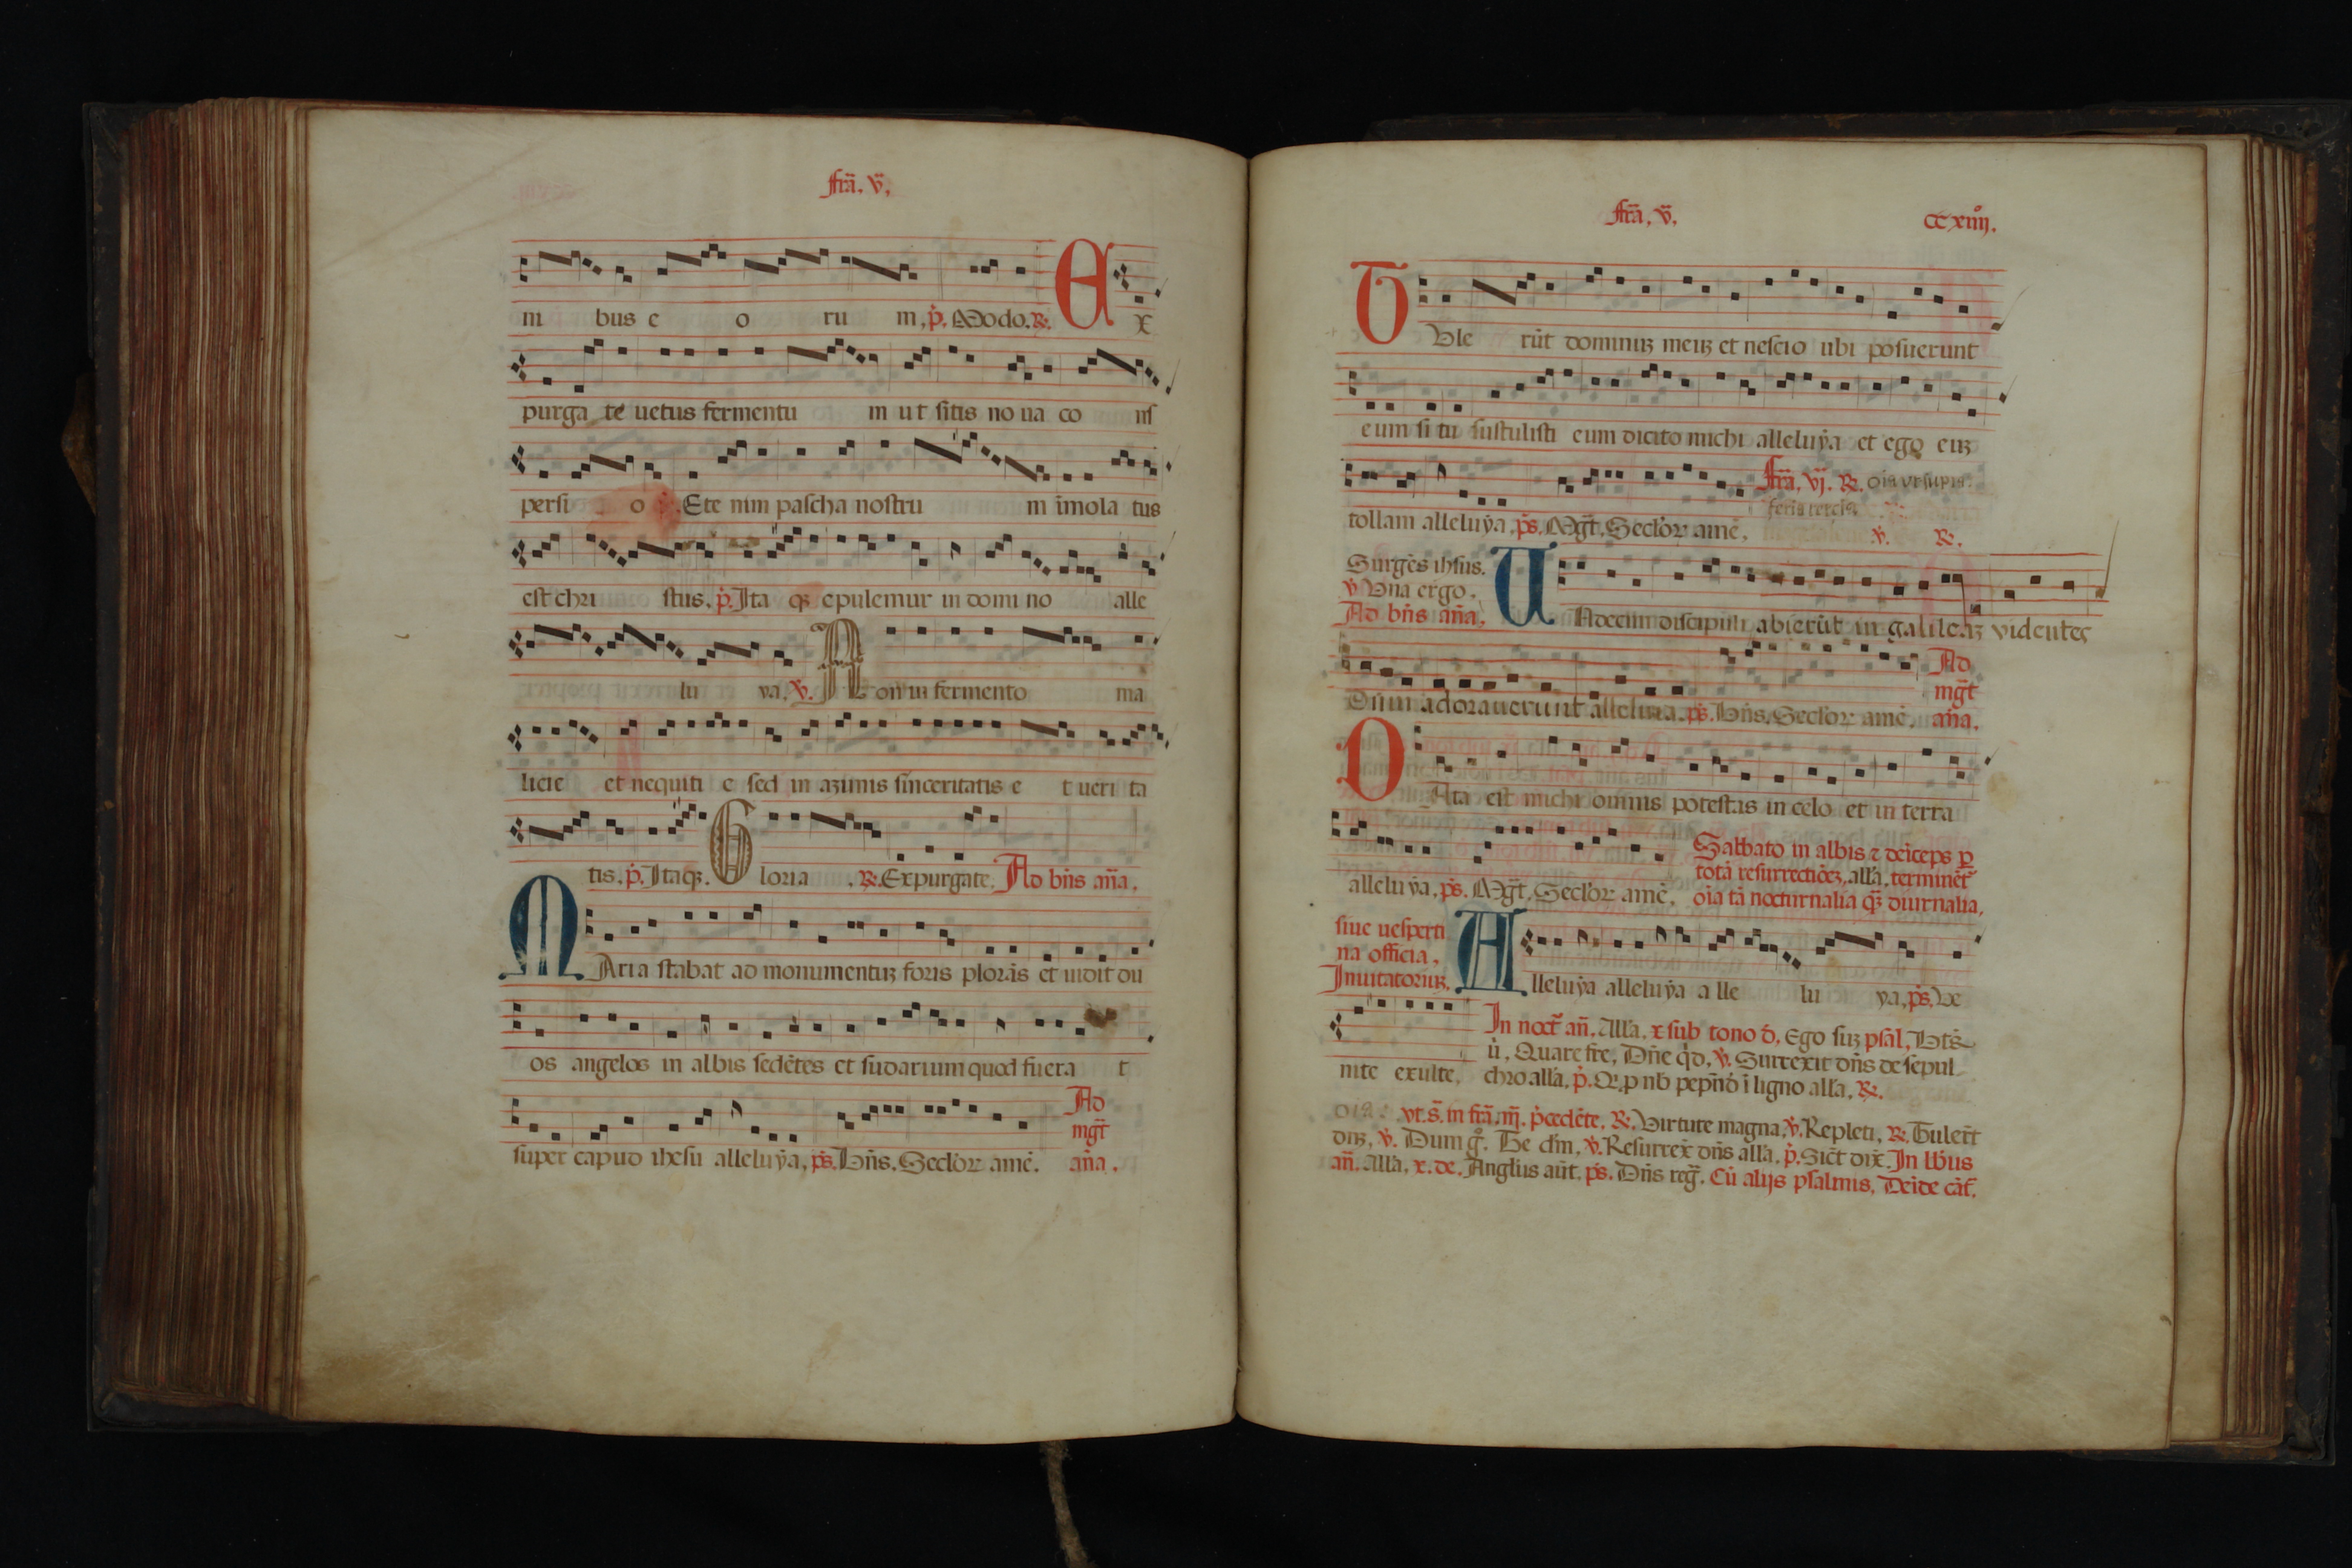 fr̄a. v̄.
ni bus e o ru m, p̄. Modo. ℟. E x
purga te uetus fermentu m ut sitis no ua co ns
persi o .Ete nim pascha nostru m imola tus
est chri stus. p̄. Ita qꝫ epulemur in domi no alle
lu ya. ℣. N on in fermento ma
licie et nequiti e sed in azimis sinceritatis e t ueri ta
tis. p̄. Itaqꝫ. G loria . ℟. Expurgate. Ad bn̄s an̄a.
M Aria stabat ad monumentuꝫ foris plorās et uidit du
os angelos in albis sedētes et sudarium quod fuera t
super capud ihesu alleluẏa, ps̄. Bn̄s. Seclōꝝ amē. Ad mḡt an̄a.
fr̄a. v̄. CCxiiijº.
T Vle rūt dominuꝫ meuꝫ et nescio ubi posuerunt
eum si tu sustulisti eum dicito michi alleluẏa et ego euꝫ
tollam alleluẏa, ps̄. Mḡt. Seclōꝝ amē. fr̄a. vj. ℟. oīa ut supra. feria tercia ℣. ℟.
Surgēs ihsus.
℣ Vna ergo.
Ad bn̄s an̄a. U Ndecim discipuli abierūt in galileaꝫ videntes
Dūm adorauerunt alleluia. ps̄. Bn̄s. Seclōꝝ amē. Ad mḡt an̄a.
D Ata est michi omnis potestas in celo et in terra
alleluẏa, ps̄. Mḡt. Seclōꝝ amē. Sabbato in albis ⁊ deīceps ꝑ
totā resurrectiōeꝫ. all'a. terminēt
oīa tā nocturnalia qꝫ̄ diurnalia,
siue uesperti
na officia.
Inuitatoriuꝫ. A lleluẏa alleluẏa a lle lu ya, ps̄. Ve
nite exulte, In noct̄ an̄. All'a. x sub tono d̄. Ego suꝫ psal, Bt̄s
ū. Quare fre, Dn̄e q̄d, ℣. Surrexit dn̄s de sepul
chro all'a, p̄. Q. p nb̄ pepn̄d ī ligno all'a. ℟.
oīa. vt. s̄. in fr̄a. iij̄. p̄cedēte. ℟. Virtute magna. ℣. Repleti, ℟. Tuler̄t
dn̄ꝫ, ℣. Dum gͦ. Te dm̄, ℣. Resurrex̄ dn̄s all'a. p̄. Sic̄t dix̄. In lb̄us
an̄. All'a. x. de. Angl'us aūt. ps̄. Dn̄s reḡ. Cū alijs psalmis. Deīde cāt̄.